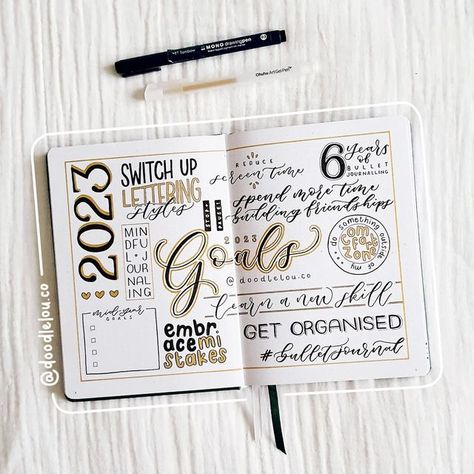 Tombow MONO drawing pen 05
Ohuhu Art Gel Pen™
@doodlelou.co
2023
SWITCH UP
LETTERING
styles
MIN
DFU
L • J
OUR
NAL
ING
mid-year
GOALS
embr
ace mi
stakes
STOP
PAUSE
REDUCE
screen time
spend more time
building friendships
6 Years
of
BULLET
JOURNALLING
2023
Goals
@doodlelou.co
do something outside of my
COM
FORT
ZONE
learn a new skill
GET ORGANISED
#bulletjournal